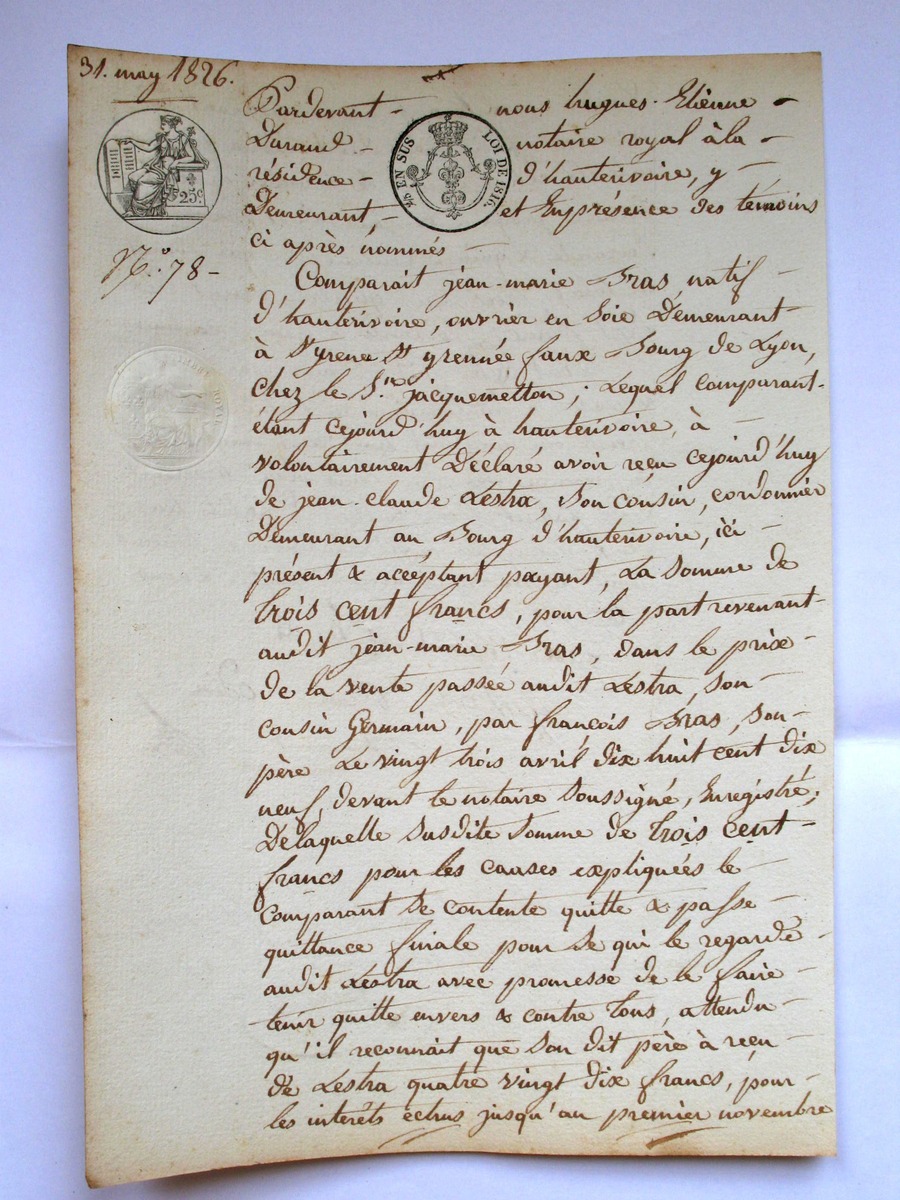 31. may 1826.
Pardevant nous hugues. Etienne
Durand notaire royal à la
résidence d'hauterivoire, y
Demeurant et Enprésence des témoins
ci après nommés
DROIT
25c.
¼ EN SUS LOI DE 1816.
N.° 78
Comparait jean-marie Bras, natif
d'hauterivoire, ouvrier en Soie Demeurant
à St grennée faux Bourg de Lyon,
chez le Sr. jacquemetton; Lequel Comparant
étant cejourd'huy à hauterivoire, à
volontairement Déclaré avoir reçu cejourd'huy
de jean-claude Lestra, son cousin, cordonnier
Demeurant au Bourg d'hauterivoire, ici
présent & accéptant payant, La somme de
trois cent francs, pour la part revenant
audit jean-marie Bras, dans le prix
de la vente passée audit Lestra, son
cousin Germain, par françois Bras, son
père Le vingt trois avril dix huit cent dix
neuf, devant le notaire soussigné, Enregistré;
Delaquelle susdite somme de trois cent
francs pour les causes expliquées le
Comparant se contente quitte & passe
quittance finale pour se qui le regarde
audit Lestra avec promesse de le faire
tenir quitte envers & contre tous, attendu
qu'il reconnait que son dit père à reçu
de Lestra quatre vingt dix francs, pour
les intérêts échus jusqu'au premier novembre